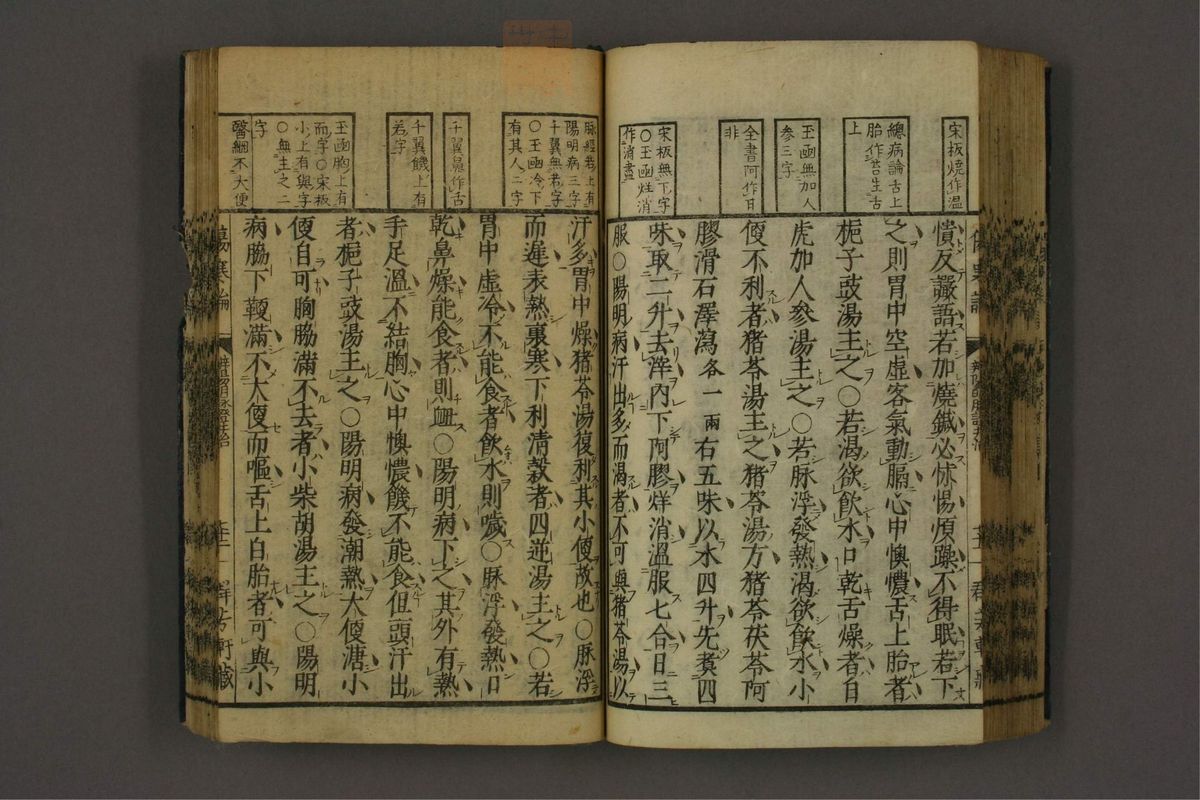 宋板燒作温
總病論舌上
胎作苔生舌
上
玉函無加人
參三字
全書阿作日
非
宋板無下字
○玉函烊消
作消盡
憒反讝語若加燒鍼必怵惕煩躁不得眠若下
之則胃中空虛客氣動膈心中懊憹舌上胎者
梔子豉湯主之○若渴欲飲水口乾舌燥者白
虎加人參湯主之○若脉浮發熱渴欲飲水小
便不利者猪苓湯主之猪苓湯方猪苓茯苓阿
膠滑石澤瀉各一兩右五味以水四升先煑四
味取二升去滓內下阿膠烊消溫服七合日三
服○陽明病汗出多而渴者不可與猪苓湯以
脉經若上有
陽明病三字
千翼無若字
○玉函冷下
有其人二字
千翼鼻作舌
千翼饑上有
若字
玉函胸上有
而字○宋板
小上有與字
○無主之二
字
醫綱不大便
汗多胃中燥猪苓湯復利其小便故也○脉浮
而遲表熱裏寒下利清穀者四逆湯主之○若
胃中虛冷不能食者飲水則噦○脉浮發熱口
乾鼻燥能食者則衄○陽明病下之其外有熱
手足溫不結胸心中懊憹饑不能食但頭汗出
者梔子豉湯主之○陽明病發潮熱大便溏小
便自可胸脇滿不去者小柴胡湯主之○陽明
病脇下鞕滿不大便而嘔舌上白胎者可與小
傷寒論